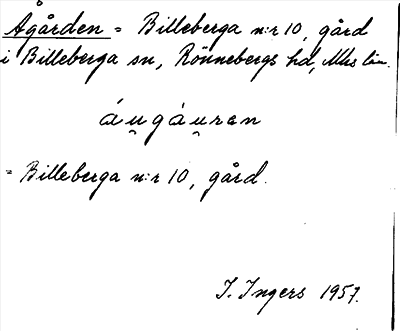 Ågården = Billeberga n:r 10, gård
i Billeberga sn, Rönnebergs hd, Mhs län.
áu̯gáu̯ren
= Billeberga n:r 10, gård.
I. Ingers 1957.